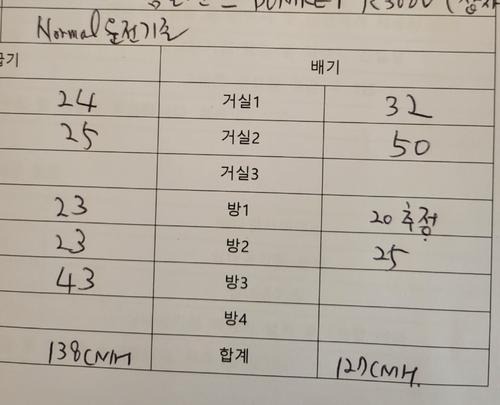 Normal 운전기준
급기 배기
24 거실1 32
25 거실2 50
거실3
23 방1 20 추정
23 방2 25
43 방3
방4
138CMH 합계 127CMH.